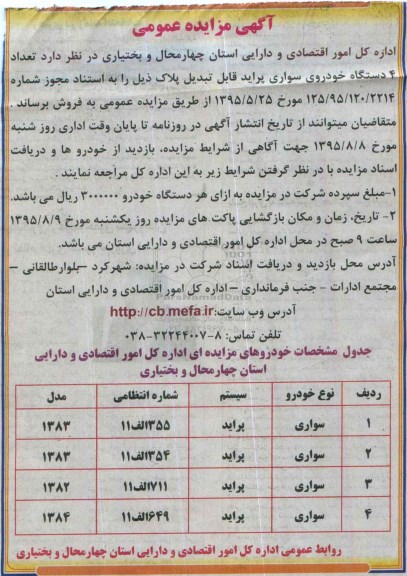 آگهی مزایده عمومی
اداره کل امور اقتصادی و دارایی استان چهارمحال و بختیاری در نظر دارد تعداد
۴ دستگاه خودروی سواری پراید قابل تبدیل پلاک ذیل را به استناد مجوز شماره
۱۲۵/۹۵/۱۲۰/۲۲۱۴ مورخ ۱۳۹۵/۵/۲۵ از طریق مزایده عمومی به فروش برساند .
متقاضیان میتوانند از تاریخ انتشار آگهی در روزنامه تا پایان وقت اداری روز شنبه
مورخ ۱۳۹۵/۸/۸ جهت آگاهی از شرایط مزایده، بازدید از خودرو ها و دریافت
اسناد مزایده با در نظر گرفتن شرایط زیر به این اداره کل مراجعه نمایند .
۱-مبلغ سپرده شرکت در مزایده به ازای هر دستگاه خودرو ۳۰۰۰۰۰۰ ریال می باشد.
۲- تاریخ، زمان و مکان بازگشایی پاکت های مزایده روز یکشنبه مورخ ۱۳۹۵/۸/۹
ساعت ۹ صبح در محل اداره کل امور اقتصادی و دارایی استان می باشد.
آدرس محل بازدید و دریافت اسناد شرکت در مزایده: شهرکرد –بلوارطالقانی –
مجتمع ادارات - جنب فرمانداری – اداره کل امور اقتصادی و دارایی استان
ParsNamadData
آدرس وب سایت: http://cb.mefa.ir
تلفن تماس: ۸-۳۲۲۴۴۰۰۷-۰۳۸
جدول مشخصات خودروهای مزایده ای اداره کل امور اقتصادی و دارایی
استان چهارمحال و بختیاری
ردیف نوع خودرو سیستم شماره انتظامی مدل
۱ سواری پراید ۳۵۵الف۱۱ ۱۳۸۳
۲ سواری پراید ۳۵۴الف۱۱ ۱۳۸۳
۳ سواری پراید ۷۱۱الف۱۱ ۱۳۸۲
۴ سواری پراید ۶۴۹الف۱۱ ۱۳۸۴
روابط عمومی اداره کل امور اقتصادی و دارایی استان چهارمحال و بختیاری